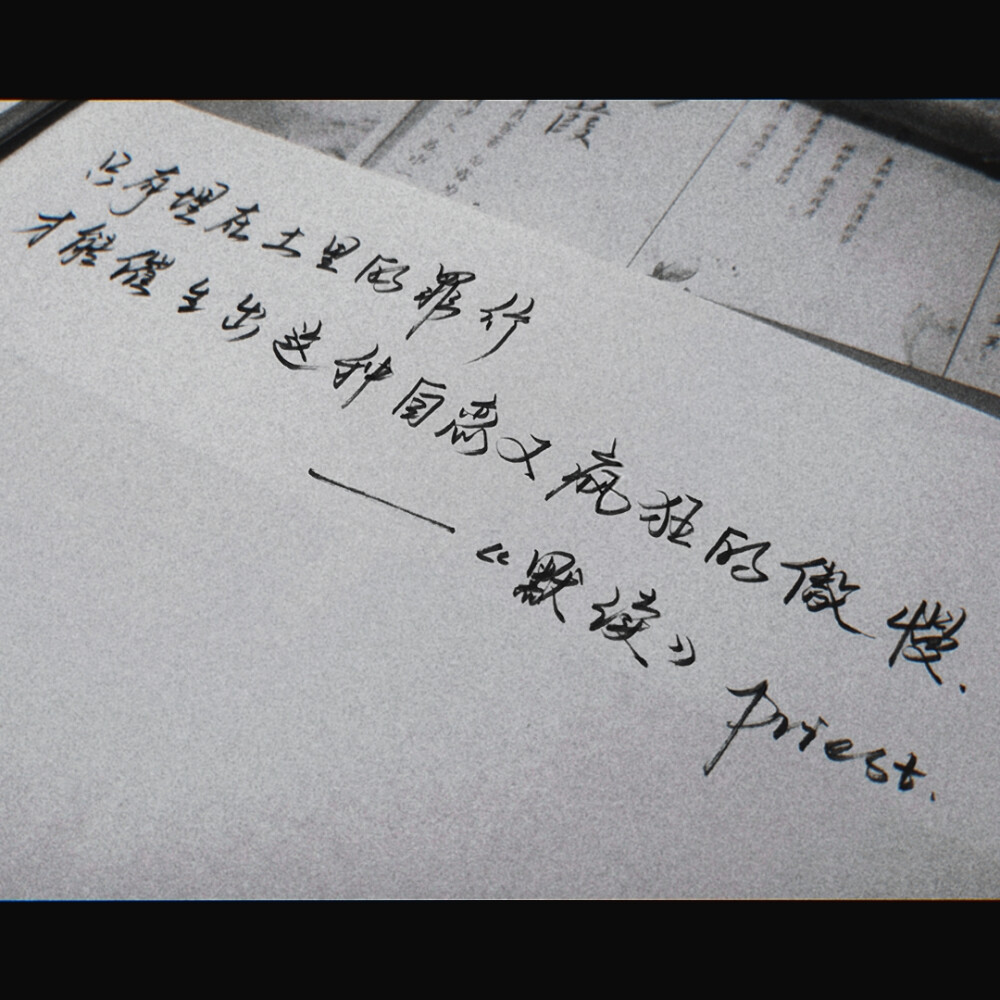 只有埋在土里的罪行
才能催生出这种自恋又疯狂的傲慢.
——《默读》
priest.
葭